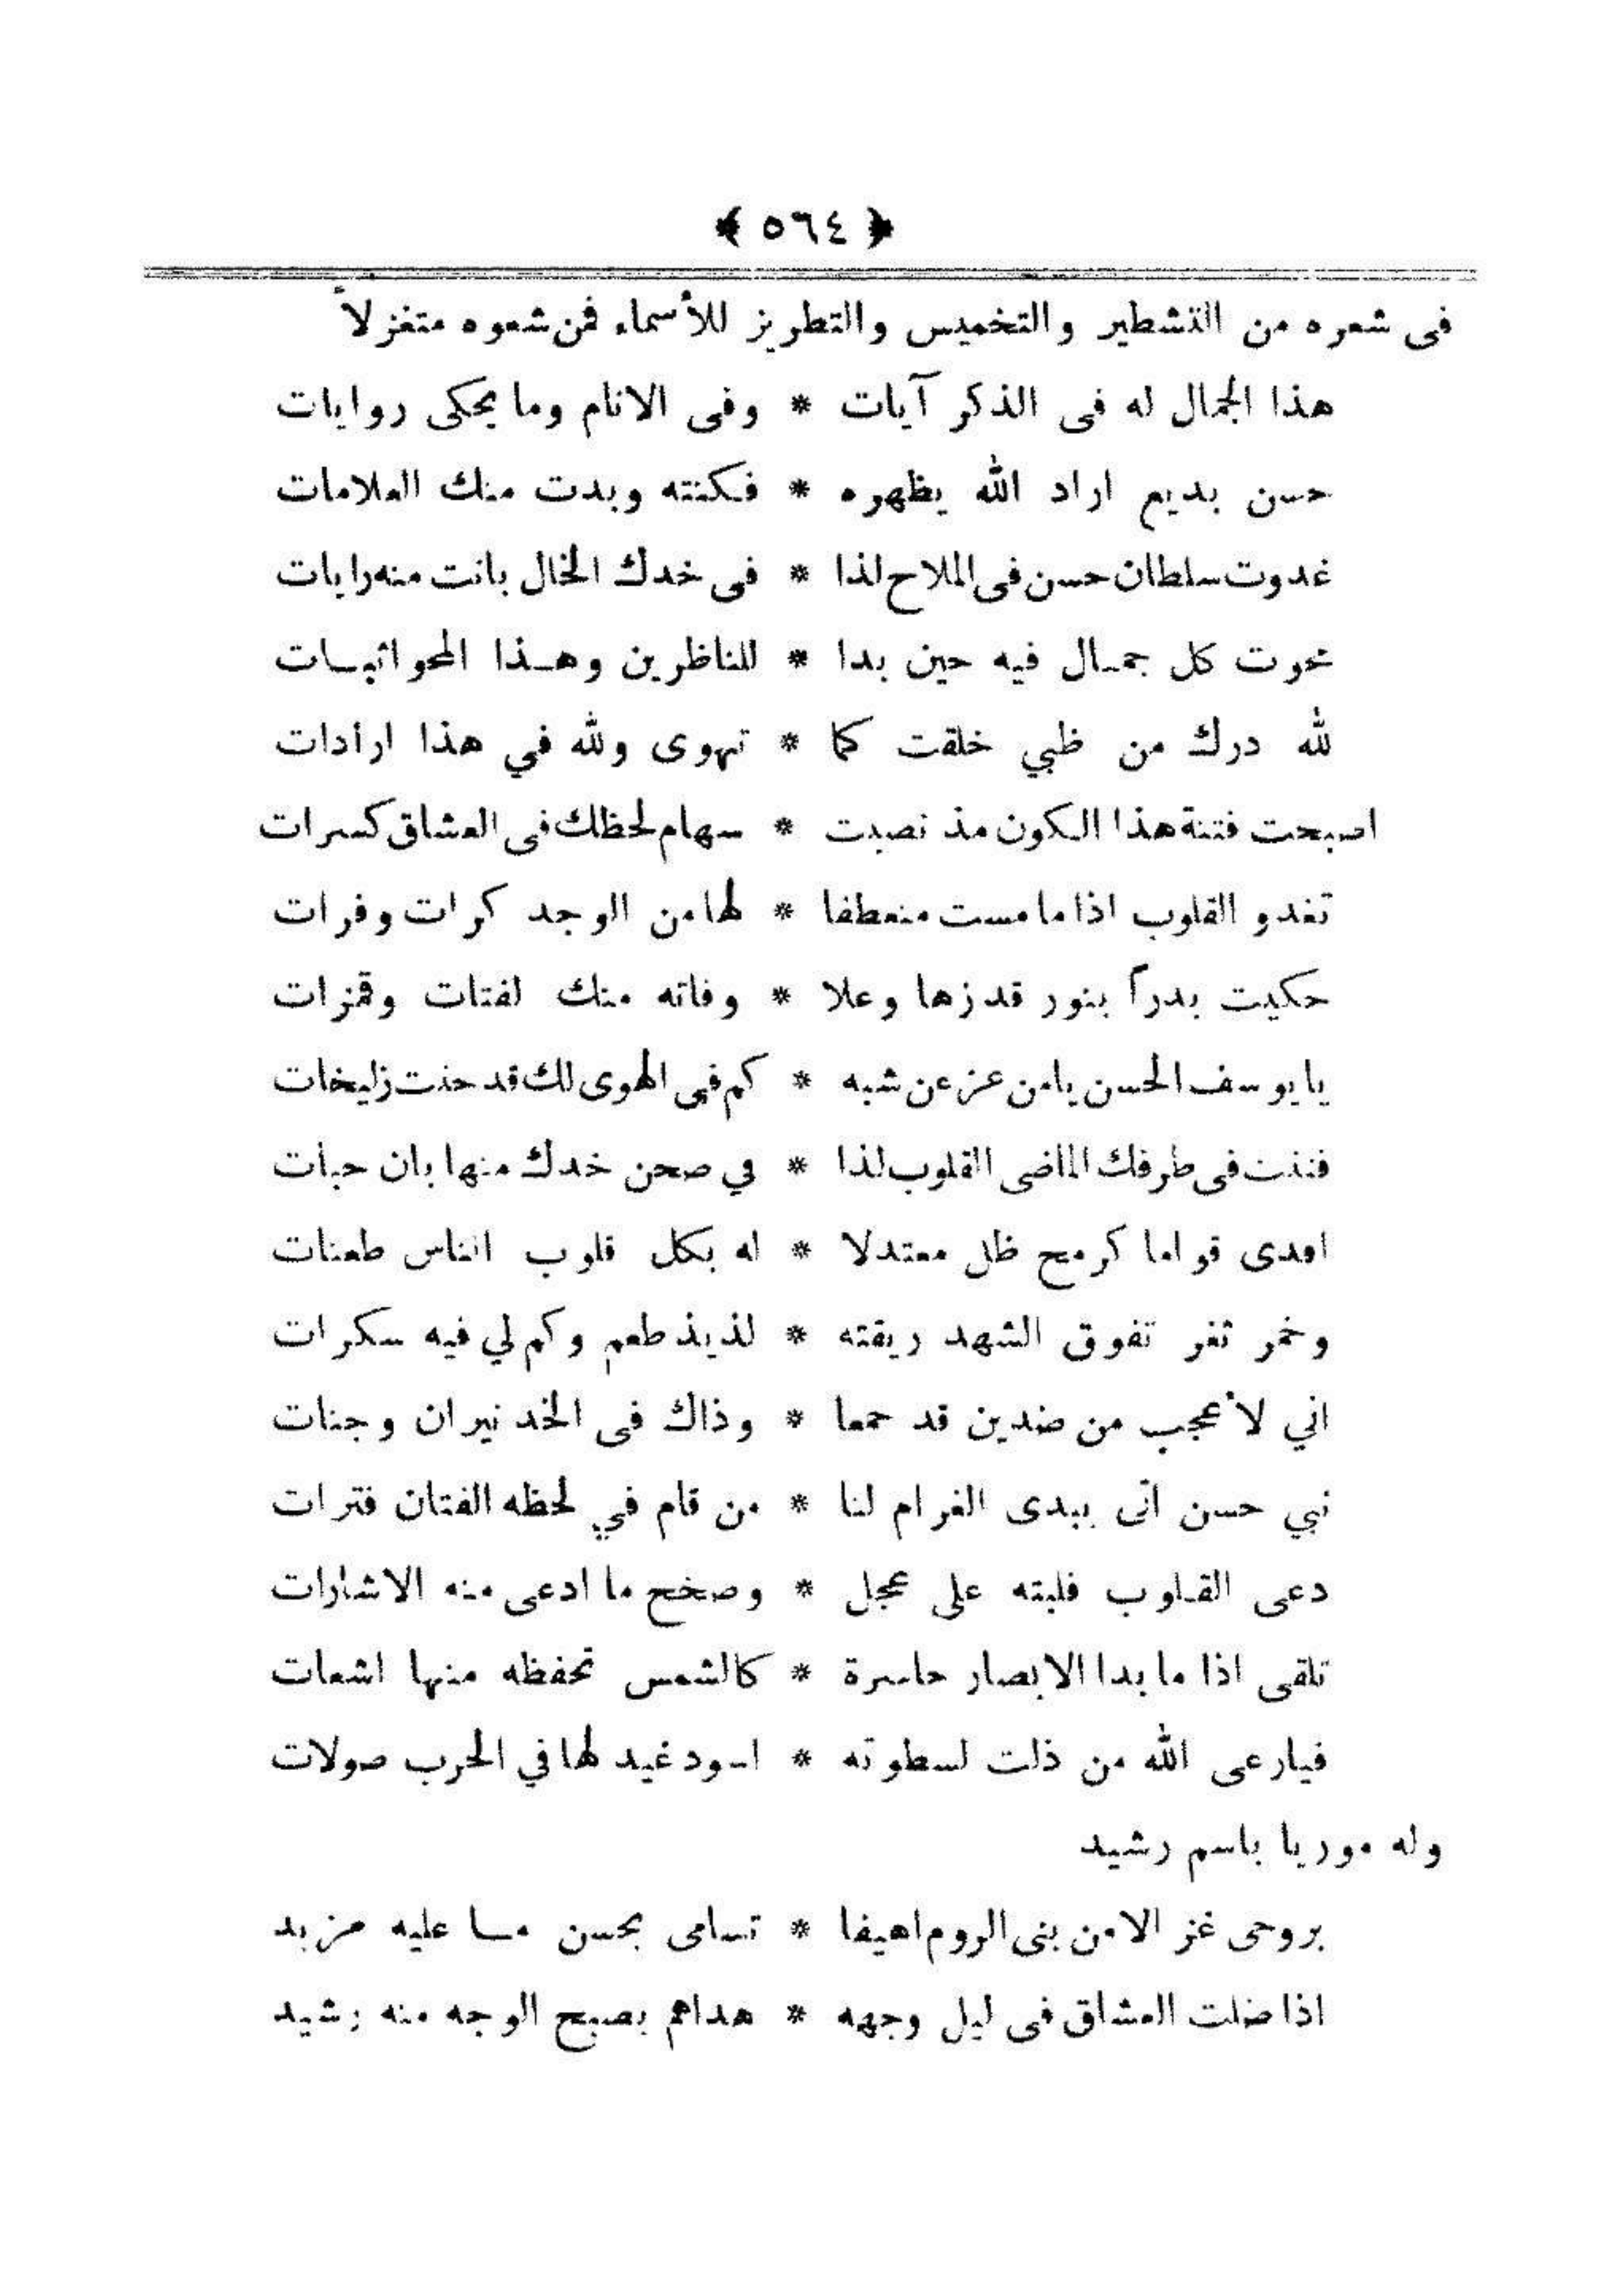 ﴿ ٥٦٤ ﴾
فى شعره من التشطير والتخميس والتطريز للأسماء فمن شعوه متغزلاً
هذا الجمال له فى الذكر آيات * وفى الانام وما يحكى روايات
حسن بديع اراد الله يظهره * فكنته وبدت منك العلامات
غدوت سلطان حسن فى الملاح لذا * فى خدك الخال بانت منه رايات
حوت كل جمال فيه حين بدا * للناظرين وهذا المحو اثبات
لله درك من ظبي خلقت كما * تهوى ولله في هذا ارادات
اصبحت فتنة هذا الكون مذ نصبت * سهام لحظك فى العشاق كسرات
تغدو القلوب اذا ما مست منعطفا * لها من الوجد كرات وفرات
حكيت بدراً بنور قد زها وعلا * وفاته منك لفتات وقمزات
يا يوسف الحسن يا من عز عن شبه * كم فى الهوى لك قد حنت زليخات
فتنت فى طرفك الماضى القلوب لذا * في صحن خدك منها بان حبات
افدى قواما كرمح ظل معتدلا * له بكل قلوب الناس طعنات
وخمر ثغر تفوق الشهد ريقته * لذيذ طعم وكم لي فيه سكرات
اني لأعجب من ضدين قد جمعا * وذاك فى الخد نيران وجنات
نبي حسن اتى يبدى الغرام لنا * من قام في لحظه الفتان فترات
دعى القلوب فلبته على عجل * وصحح ما ادعى منه الاشارات
تلقى اذا ما بدا الابصار حاسرة * كالشمس تحفظه منها اشعات
فيا رعى الله من ذلت لسطوته * اسود غيد لها في الحرب صولات
وله موريا باسم رشيد
بروحى غز الا من بنى الروم اهيفا * تسامى بحسن ما عليه مزيد
اذا ضلت العشاق فى ليل وجهه * هداهم بصبح الوجه منه رشيد